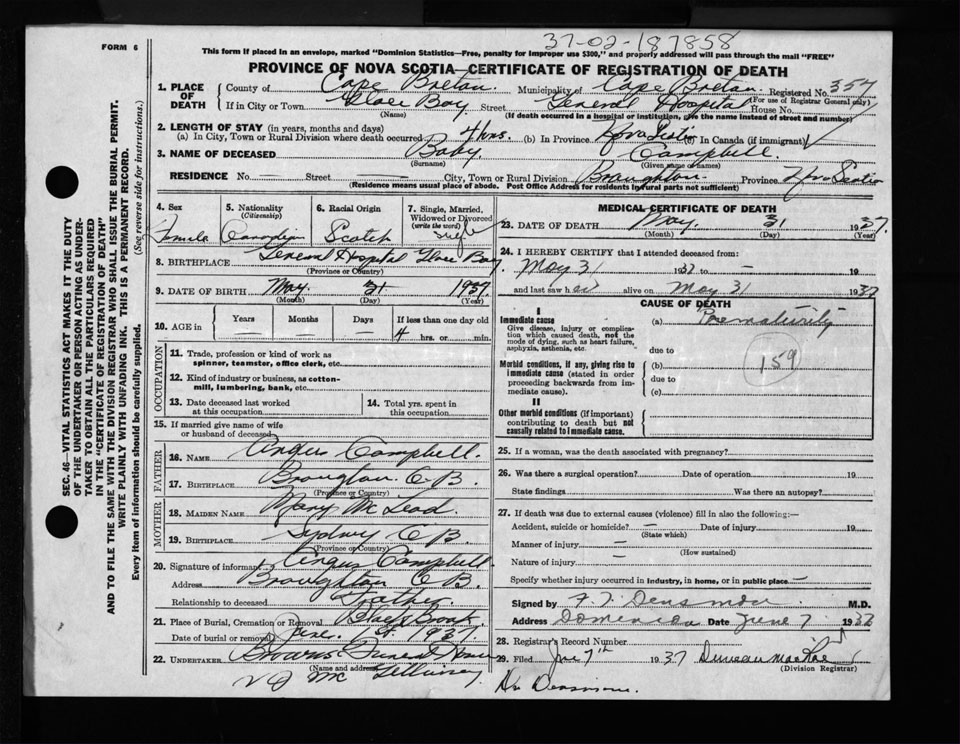 37-02-187858
FORM 6
This form if placed in an envelope, marked "Dominion Statistics—Free, penalty for improper use $300," and properly addressed will pass through the mail "FREE"
PROVINCE OF NOVA SCOTIA—CERTIFICATE OF REGISTRATION OF DEATH
SEC. 46—VITAL STATISTICS ACT MAKES IT THE DUTY
OF THE UNDERTAKER OR PERSON ACTING AS UNDER-
TAKER TO OBTAIN ALL THE PARTICULARS REQUIRED
IN THE "CERTIFICATE OF REGISTRATION OF DEATH"
AND TO FILE THE SAME WITH THE DIVISION REGISTRAR WHO SHALL ISSUE THE BURIAL PERMIT.
WRITE PLAINLY WITH UNFADING INK. THIS IS A PERMANENT RECORD.
Every item of information should be carefully supplied. (See reverse side for instructions.)
1. PLACE OF DEATH County of Cape Breton Municipality of Cape Breton Registered No. 357
(For use of Registrar General only)
If in City or Town Glace Bay Street General Hospital House No.
(Name) (If death occurred in a hospital or institution, give the name instead of street and number)
2. LENGTH OF STAY (in years, months and days)
(a) In City, Town or Rural Division where death occurred 4 hrs. (b) In Province Nova Scotia (c) In Canada (if immigrant)
3. NAME OF DECEASED Baby Campbell
(Surname) (Given name or names)
RESIDENCE No. — Street — City, Town or Rural Division Broughton Province Nova Scotia
(Residence means usual place of abode. Post Office Address for residents in rural parts not sufficient)
4. Sex Female
5. Nationality (Citizenship) Canadian
6. Racial Origin Scotch
7. Single, Married, Widowed or Divorced (write the word) Single
8. BIRTHPLACE General Hospital Glace Bay
(Province or Country)
9. DATE OF BIRTH May 31 1937
(Month) (Day) (Year)
10. AGE in Years — Months — Days — If less than one day old 4 hrs. or min.
OCCUPATION
11. Trade, profession or kind of work as spinner, teamster, office clerk, etc.
12. Kind of industry or business, as cotton-mill, lumbering, bank, etc.
13. Date deceased last worked at this occupation
14. Total yrs. spent in this occupation
15. If married give name of wife or husband of deceased
FATHER
16. NAME Angus Campbell
17. BIRTHPLACE Broughton C.B.
(Province or Country)
MOTHER
18. MAIDEN NAME Mary McLeod
19. BIRTHPLACE Sydney C B.
(Province or Country)
20. Signature of informant Angus Campbell
Address Broughton C B.
Relationship to deceased Father
21. Place of Burial, Cremation or Removal Black Brook
Date of burial or removal June 1st 1937
22. UNDERTAKER Browns Funeral Home
(Name and address)
MEDICAL CERTIFICATE OF DEATH
23. DATE OF DEATH May 31 1937
(Month) (Day) (Year)
24. I HEREBY CERTIFY that I attended deceased from
May 31 1937 to — 19
and last saw her alive on May 31 1937
CAUSE OF DEATH
I
Immediate cause
Give disease, injury or complication which caused death, not the mode of dying, such as heart failure, asphyxia, asthenia, etc.
(a) Prematurity
due to
Morbid conditions, if any, giving rise to immediate cause (stated in order proceeding backwards from immediate cause).
(b)
due to
(c)
159
II
Other morbid conditions (if important) contributing to death but not causally related to immediate cause.
25. If a woman, was the death associated with pregnancy?
26. Was there a surgical operation? Date of operation 19
State findings Was there an autopsy?
27. If death was due to external causes (violence) fill in also the following:—
Accident, suicide or homicide? — Date of injury 19
(State which)
Manner of injury —
(How sustained)
Nature of injury —
Specify whether injury occurred in industry, in home, or in public place —
Signed by Densmore M.D.
Address Dominion Date June 7 1937
28. Registrar's Record Number
29. Filed June 7th 1937 Duncan MacRae
(Division Registrar)
Dr Densmore.